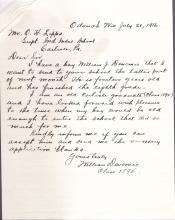 Odanah Wis July 21, 1916
Mr. O. H. Lipps
Supt. Ind. School
Carlisle, Pa.
Dear Sir:
I have a boy William J. Denomie that I
want to send to your school the latter part
of next month. He is fourteen years old
and has finished the eighth grade.
I am an old Carlisle graduate (Class 1894)
and I have looked forward with pleasure
to the time when my boy would be old
enough to enter the school that did so
much for me.
Kindly inform me if you can
accept him and send me the necessary
application blanks.
Yours truly,
William Denomie
Class 1894.